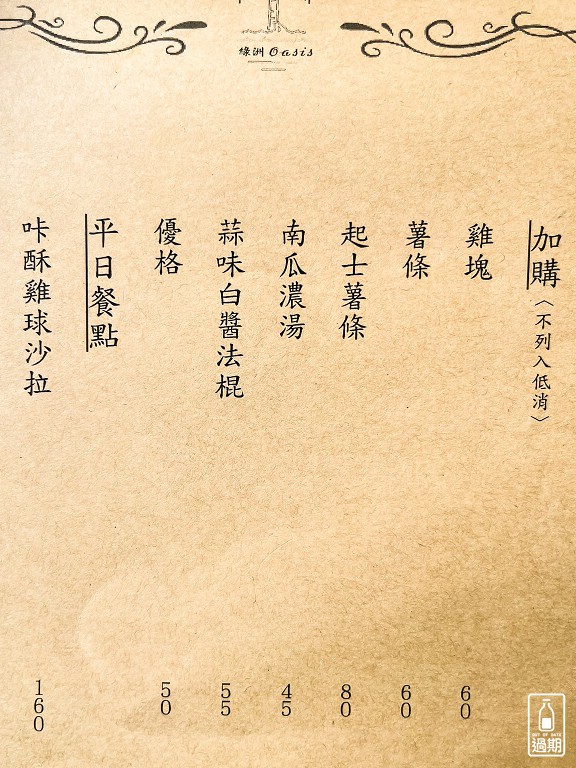 綠洲 Oasis
加購〈不列入低消〉
雞塊 60
薯條 60
起士薯條 80
南瓜濃湯 45
蒜味白醬法棍 55
優格 50
平日餐點
咔酥雞球沙拉 160
OUT OF DATE
過期